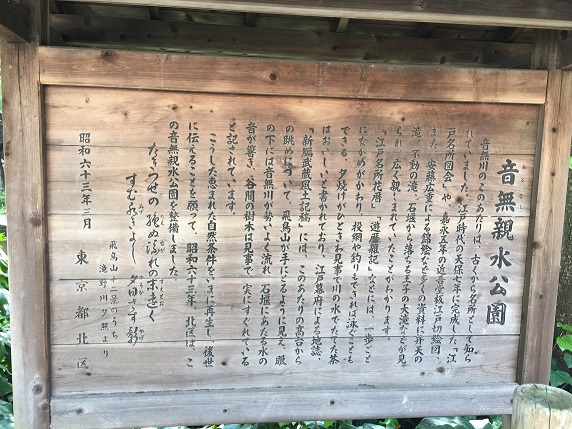 音無親水公園
おとなししんすいこうえん
音無川のこのあたりは、古くから名所として知ら
れていました。江戸時代の天保七年に完成した「江
戸名所図会」や、嘉永五年の近吾堂板江戸切絵図、
また、安藤広重による錦絵など多くの資料に弁天の
滝、不動の滝、石堰から落ちる王子の大滝などが見
られ、広く親しまれていたことがわかります。
「江戸名所花暦」「遊歴雑記」などには、一歩ごと
にながめがかわり、投網や釣りもできれば泳ぐことも
できる、夕焼けがひときわ見事で川の水でたてた茶
はおいしいと書かれており、江戸幕府による地誌
「新編武蔵風土記稿」には、このあたりの高台から
の眺めについて、飛鳥山が手にとるように見え、眼
の下には音無川が勢いよく流れ、石堰にあたる水の
音が響き、谷間の樹木は見事で、実にすぐれている
と記されています。
こうした恵まれた自然条件をいまに再生し、後世
に伝えることを願って、昭和六十三年、北区は、こ
の音無親水公園を整備しました。
たきつせの絶ぬ流れの末遠く
すむ水きよし夕日てる影
飛鳥山十二景のうち
滝野川夕照より
昭和六十三年三月
東京都北区